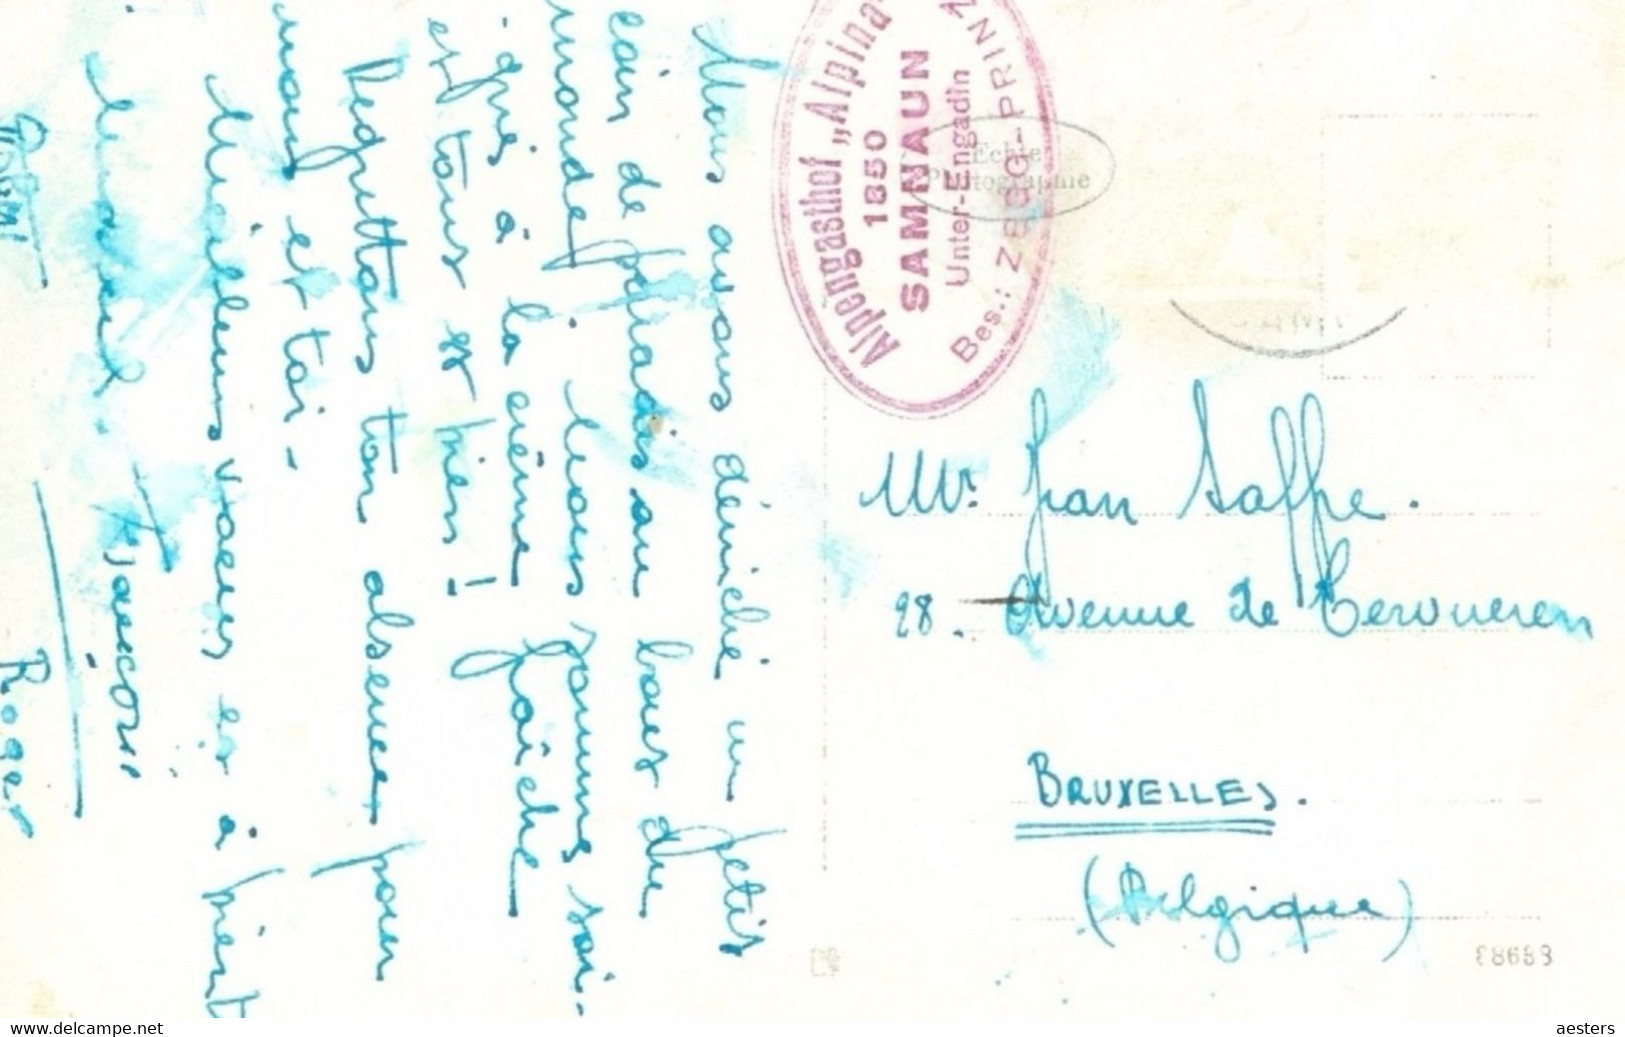 Nous avons déniché un petit
coin de paradis au bout du
monde, nous sommes soi-
gnés à la crème fraîche
et tout est bien !
Regrettons ton absence pour
nous et toi -
Meilleurs vœux et à bient
Roger
Alpengasthof „Alpina"
1850
SAMNAUN
Unter-Engadin
Bes.: ZEGG-PRINZ
Echte
Photographie
Mr. Jean
28. Avenue de Tervueren
BRUXELLES.
(Belgique)
www.delcampe.net
aesters